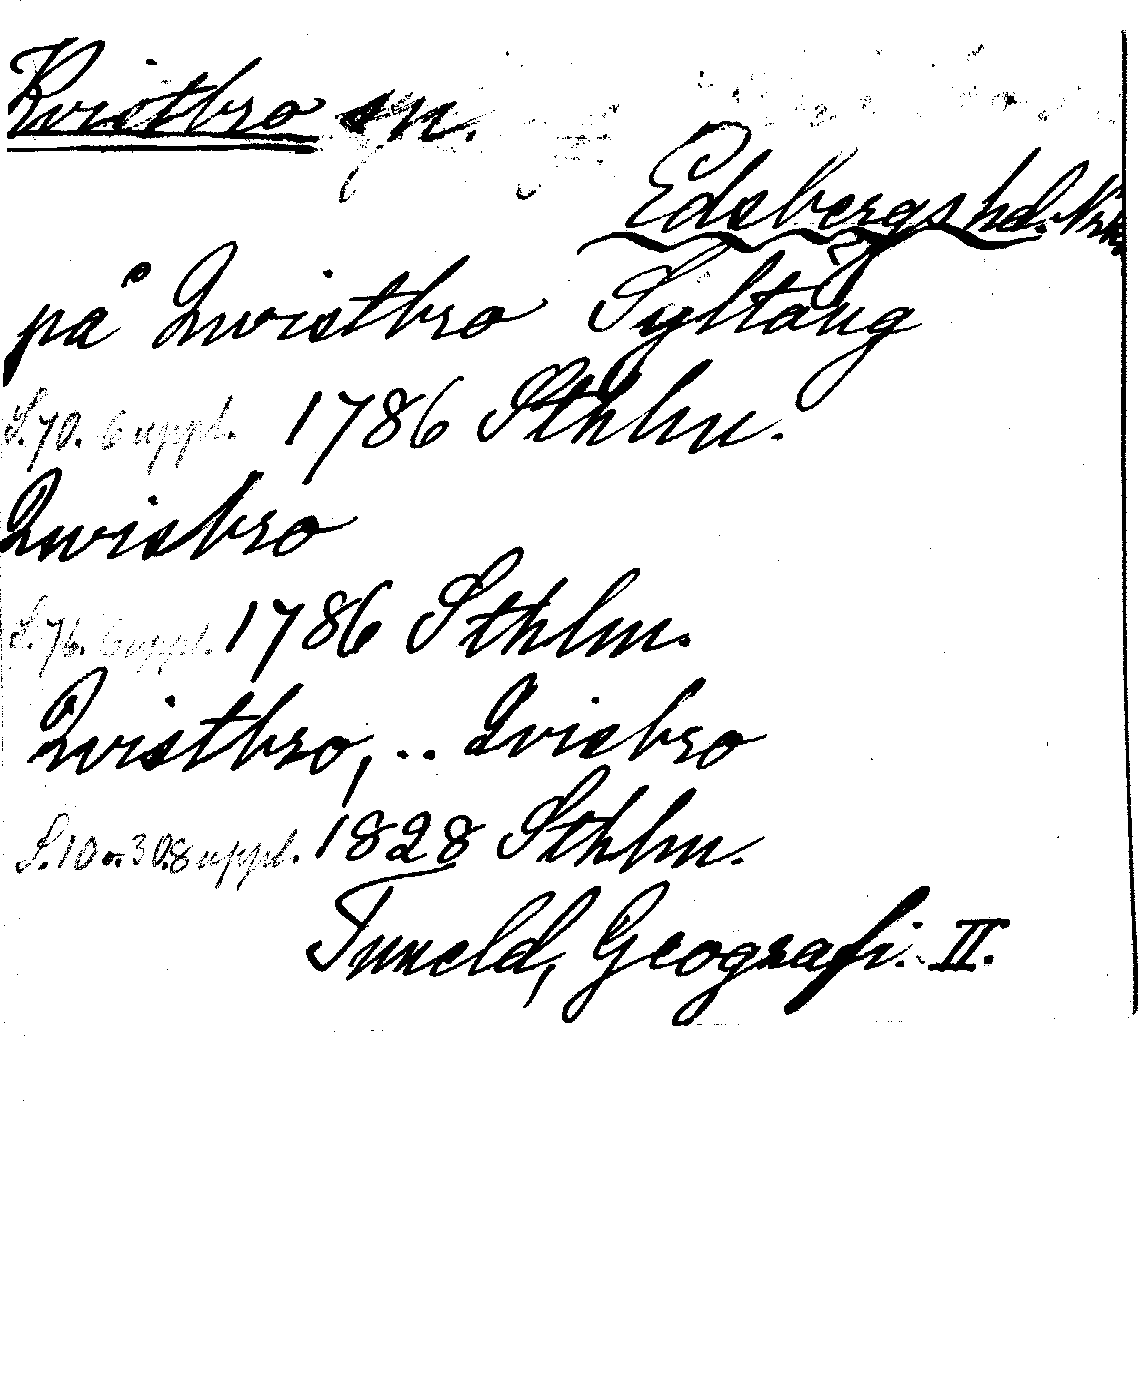 Kvistbro sn.
Edsbergs hd. Nrke
på Quvistbro Syltäng
S. 70. 6 uppl. 1786 Sthlm.
Quvisbro
S. 76. 6 uppl. 1786 Sthlm.
Qvistbro, .. Qvisbro
S. 10 o. 30. 8 uppl. 1828 Sthlm.
Tuneld, Geografi. II.